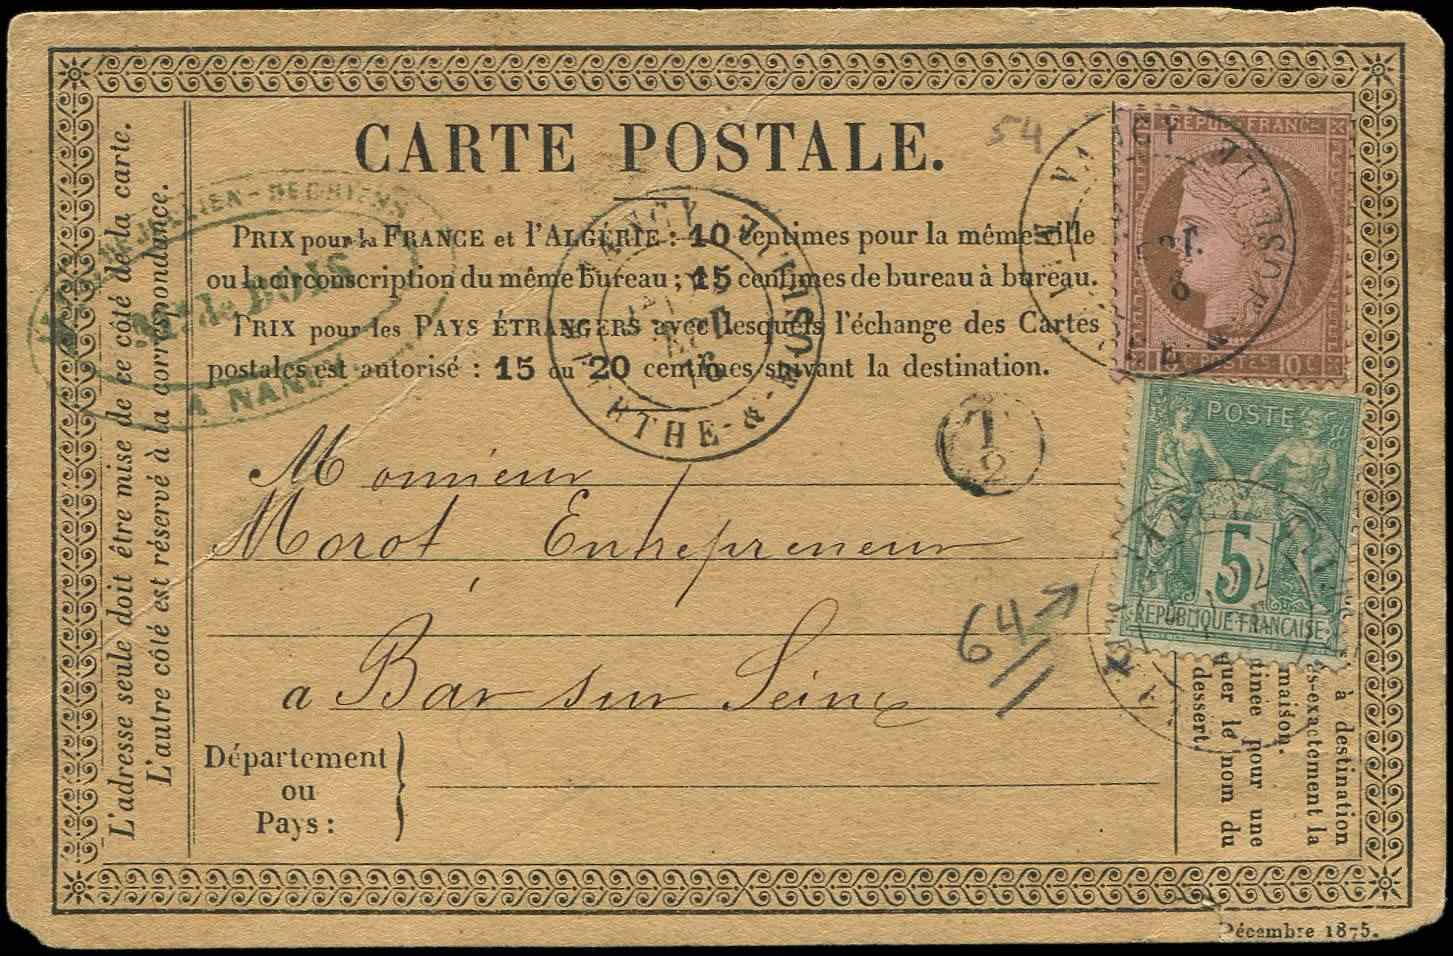 CARTE POSTALE.
54
PRIX pour la FRANCE et l'ALGÉRIE : 10 centimes pour la même ville
ou la circonscription du même bureau ; 15 centimes de bureau à bureau.
PRIX pour les PAYS ÉTRANGERS avec lesquels l'échange des Cartes
postales est autorisé : 15 ou 20 centimes suivant la destination.
L'adresse seule doit être mise de ce côté de la carte.
L'autre côté est réservé à la correspondance.
Md de BOIS
A NANCY
NANCY
MEURTHE-&-M
T
2
FRANC
10 C. POSTES 10 C.
POSTE
5
REPUBLIQUE FRANÇAISE
Monsieur
Morot Entrepreneur
64
a Bar sur Seine
Département
ou
Pays :
à destination
exactement la
maison.
pour une
quer le nom du
dessert.
Décembre 1875.